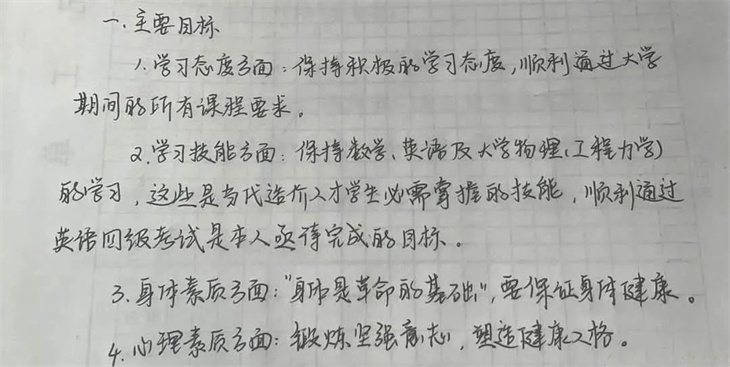 一.主要目标
1.学习态度方面：保持积极的学习态度，顺利通过大学
期间的所有课程要求。
2.学习技能方面：保持数学、英语及大学物理（工程力学）
的学习，这些是当代造价人才学生必需掌握的技能，顺利通过
英语四级考试是本人亟待完成的目标。
3.身体素质方面："身体是革命的基础"，要保证身体健康。
4.心理素质方面：锻炼坚强意志，塑造健康人格。